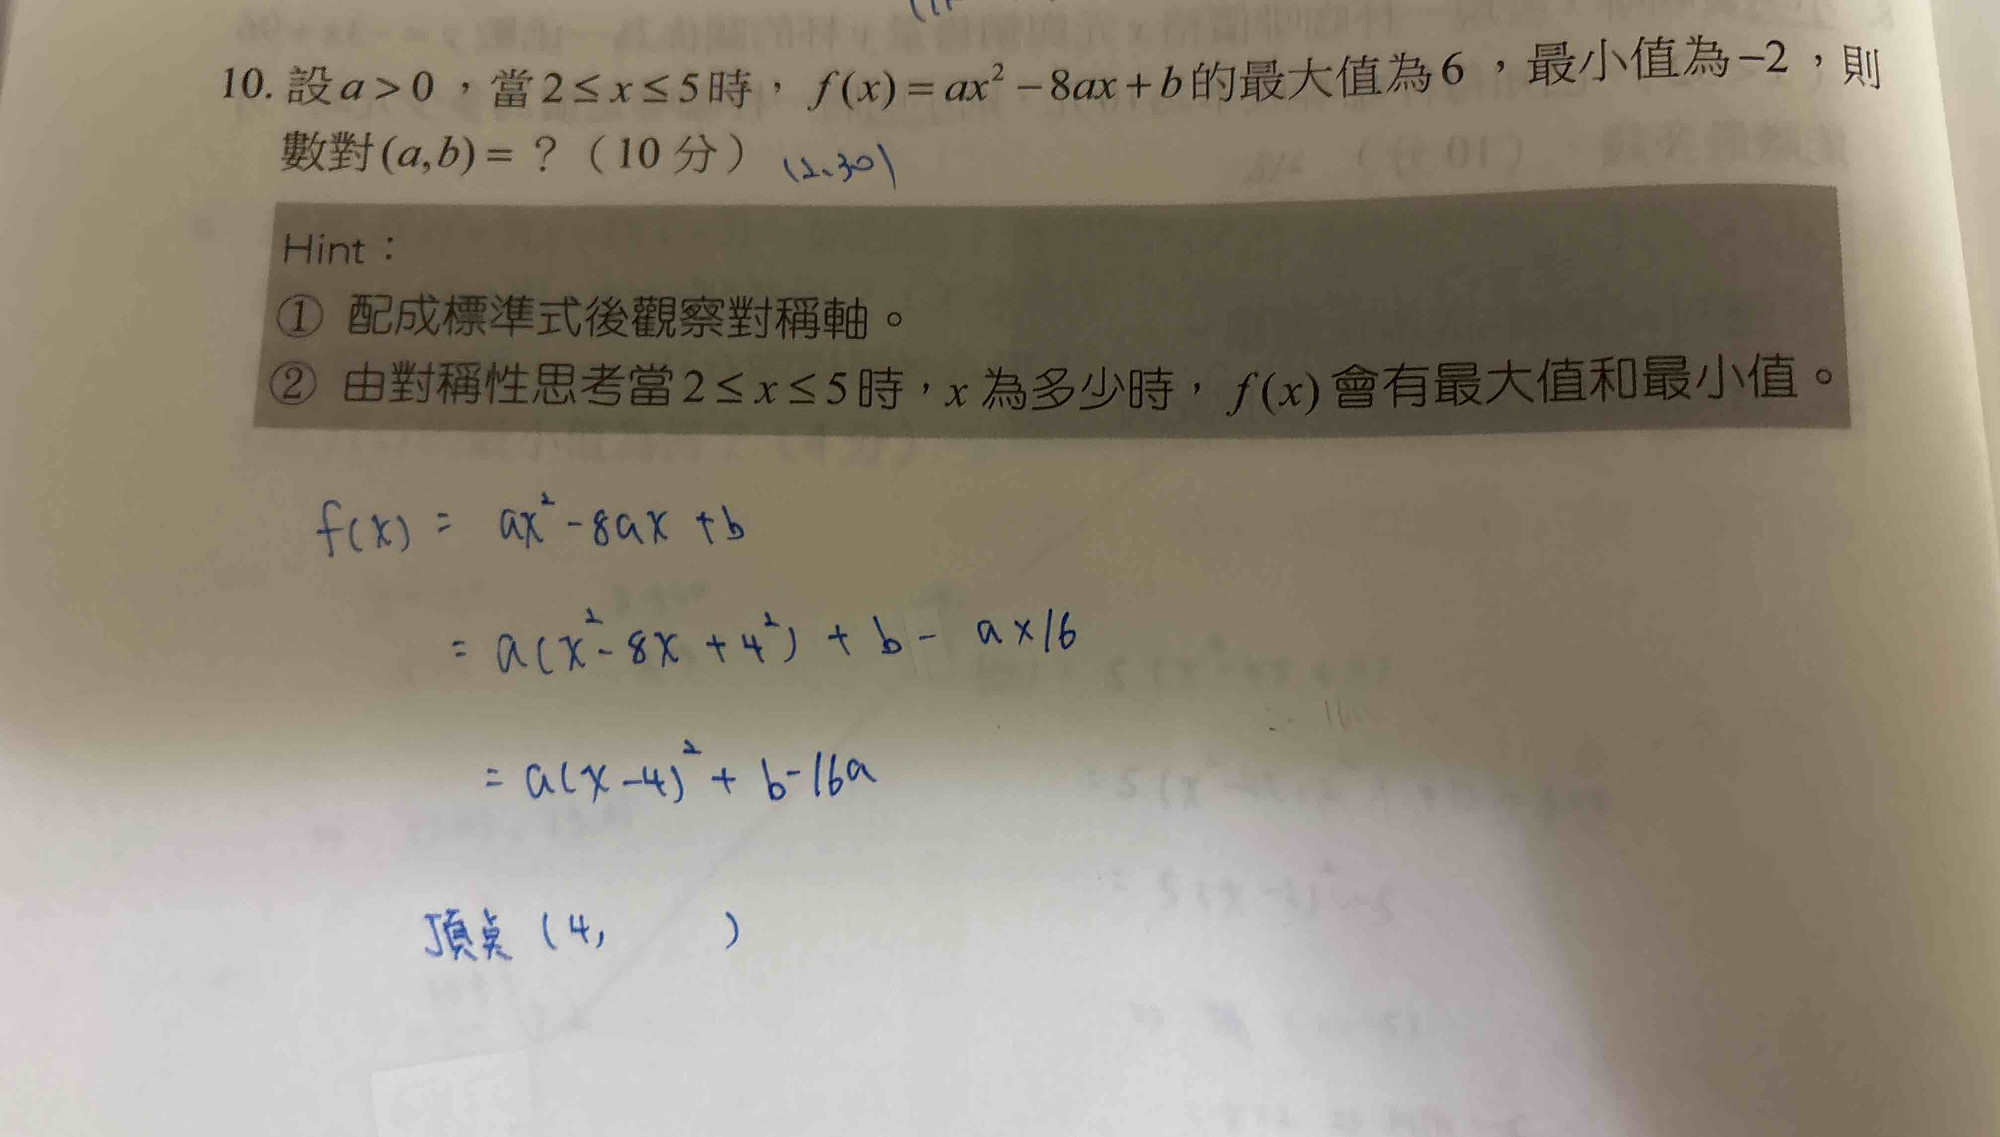 10. 設 a > 0，當 2 ≤ x ≤ 5 時，f(x) = ax² − 8ax + b 的最大值為 6，最小值為 −2，則
數對 (a,b) = ？（10 分） (2、30)
Hint：
① 配成標準式後觀察對稱軸。
② 由對稱性思考當 2 ≤ x ≤ 5 時，x 為多少時，f(x) 會有最大值和最小值。
f(x) = ax² - 8ax + b
= a(x² - 8x + 4²) + b - a × 16
= a(x - 4)² + b - 16a
頂点 (4, )